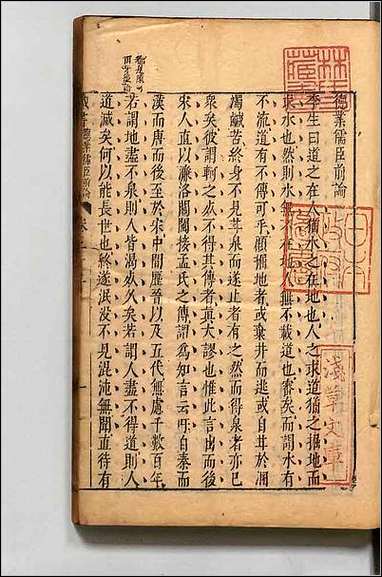 德業儒臣前論
李生曰道之在人猶水之在地也人之求道猶之掘地而
求水也然則水無不在地人無不載道也審矣而謂水有
不流道有不傳可乎顧掘地者或棄井而逃或自甘於溷
濁鹹苦終身不見甘泉而遂止者有之然而得泉者亦已
衆矣彼謂軻之死不得其傳者真大謬也惟此言出而後
宋人直以濂洛關閩接孟氏之傳謂為知言云吁自秦而
漢而唐而後至於宋中間歷晉以及五代無慮千數百年
若謂地盡不泉則人皆渴死久矣若謂人盡不得道則人
道滅矣何以能長世也終遂泯沒不見混沌無聞直待有
藏書 德業儒臣前論 卷
林氏藏書
淺草文庫